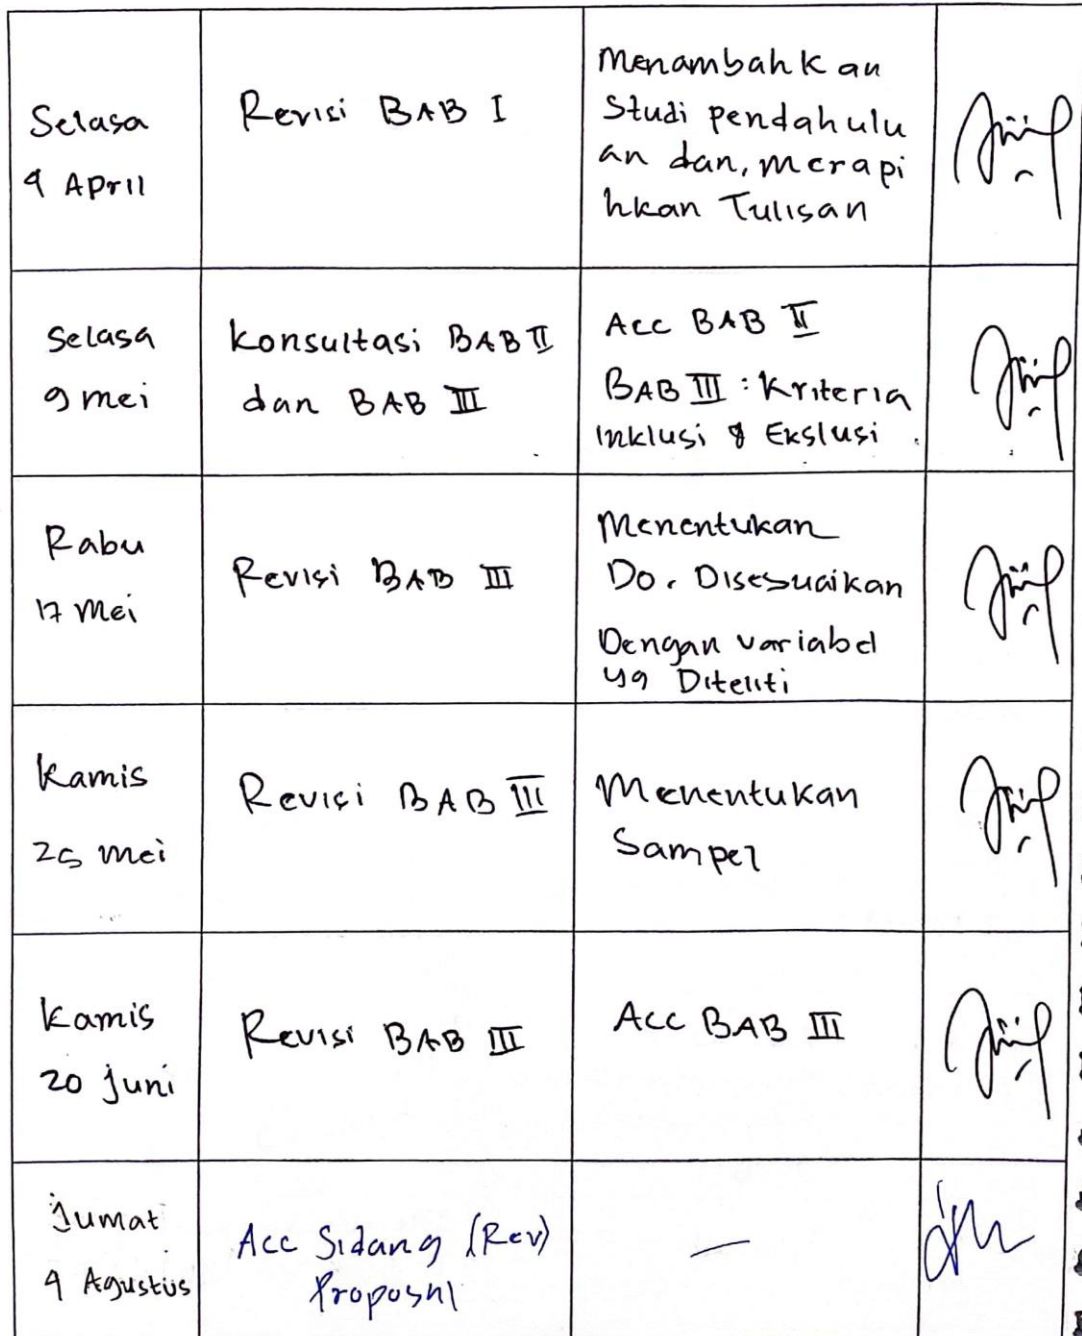 Selasa
4 April
Revisi BAB I
Menambahkan
Studi pendahulu
an dan, merapi
hkan Tulisan
Selasa
9 mei
Konsultasi BAB II
dan BAB III
Acc BAB II
BAB III : Kriteria
Inklusi & Ekslusi
Rabu
17 Mei
Revisi BAB III
Menentukan
Do. Disesuaikan
Dengan variabel
yg Diteliti
Kamis
25 mei
Revisi BAB III
Menentukan
Sampel
Kamis
20 juni
Revisi BAB III
Acc BAB III
Jumat
4 Agustus
Acc Sidang (Rev)
Proposal
—